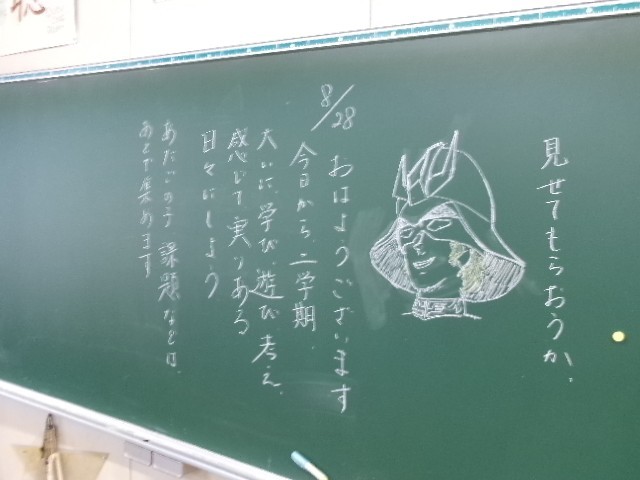 見せてもらおうか。
8/28 おはようございます
今日から、二学期.
大いに、学び、遊び、考え、
感じて実りある
日々にしよう
あたごの子 課題などは、
あとで集めます
聡